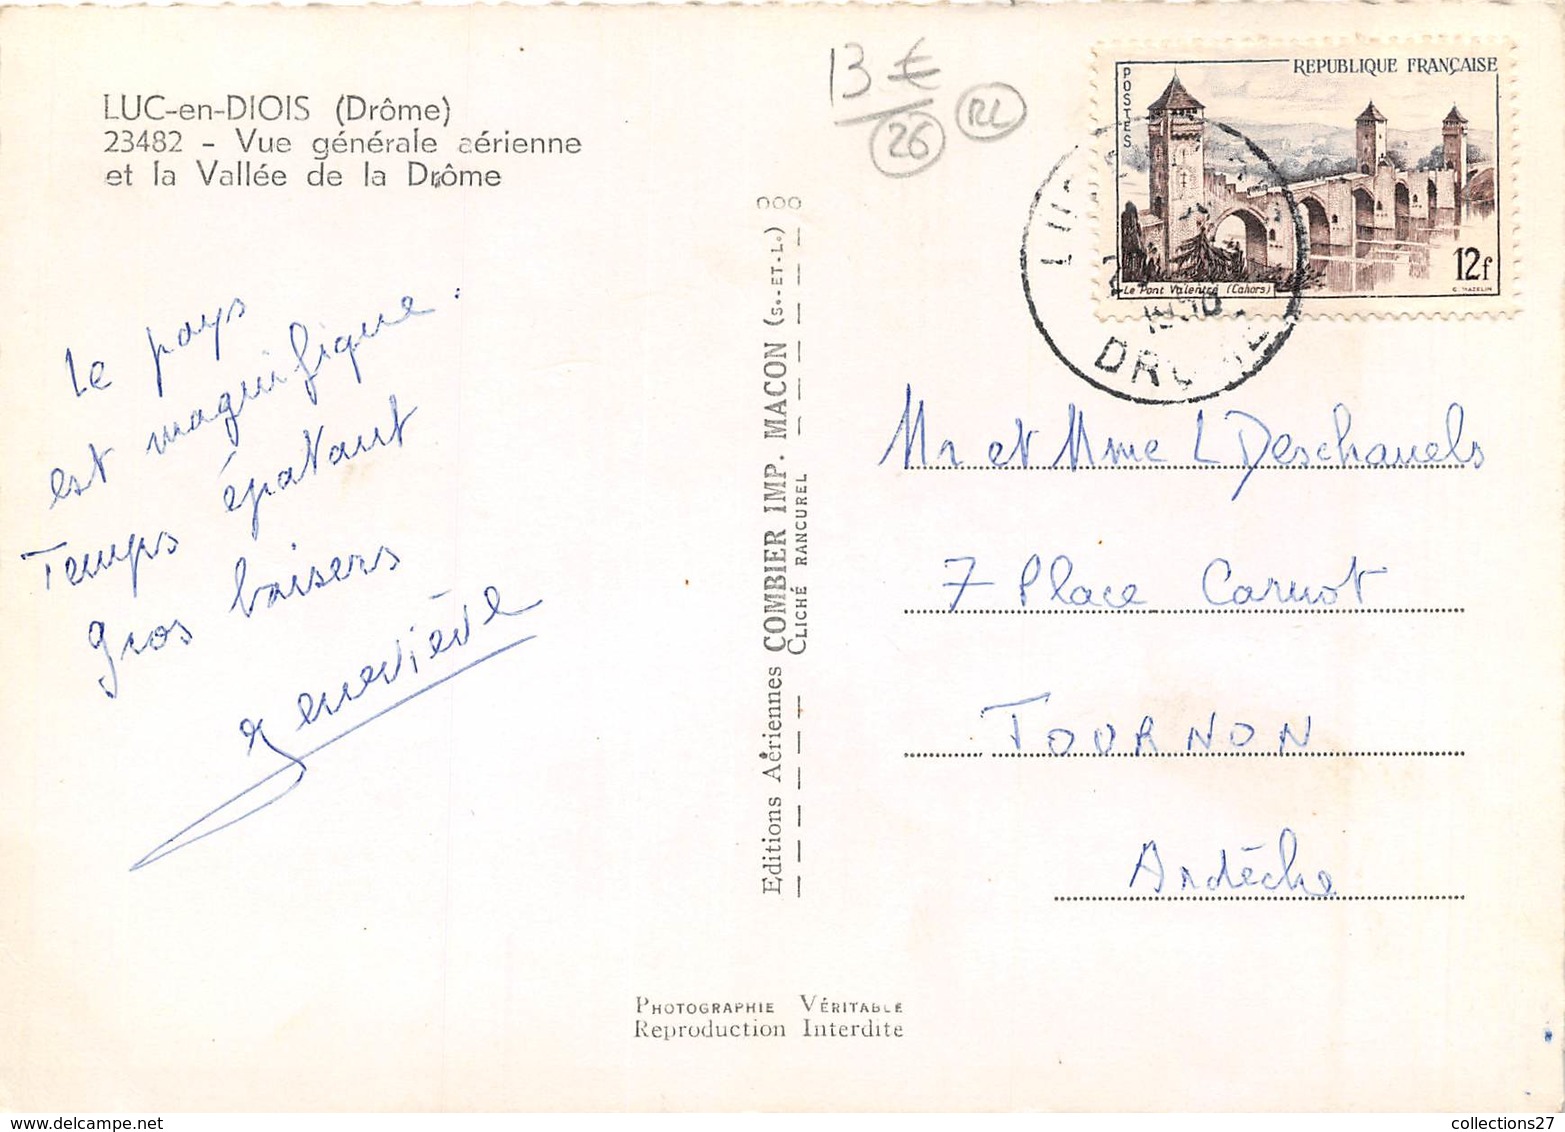 LUC-en-DIOIS (Drôme)
23482 - Vue générale aérienne
et la Vallée de la Drôme
Le pays
est magnifique.
Temps épatant
Gros baisers
Geneviève
Editions Aériennes COMBIER IMP. MACON (S.-ET-L.)
CLICHÉ RANCUREL
PHOTOGRAPHIE VÉRITABLE
Reproduction Interdite
13 €
26
RL
POSTES
REPUBLIQUE FRANÇAISE
12f
Le Pont Valentré (Cahors)
C. MAZELIN
DROME
Mr et Mme L Deschanels
7 Place Carnot
TOURNON
Ardèche
collections27